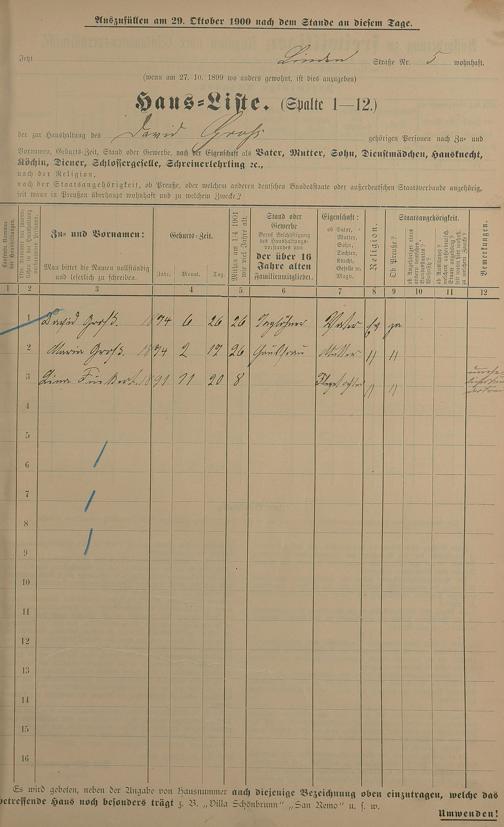 Auszufüllen am 29. Oktober 1900 nach dem Stande an diesem Tage.
Jetzt Linden Straße Nr. 5 wohnhaft.
(wenn am 27. 10. 1899 wo anders gewohnt, ist dies anzugeben)
Haus-Liste. (Spalte 1—12.)
der zur Haushaltung des David Groß gehörigen Personen nach Zu- und
Vornamen, Geburts-Zeit, Stand oder Gewerbe, nach der Eigenschaft als Vater, Mutter, Sohn, Dienstmädchen, Hausknecht,
Köchin, Diener, Schlossergeselle, Schreinerlehrling ꝛc.,
nach der Religion,
nach der Staatsangehörigkeit, ob Preuße, oder welchem anderen deutschen Bundesstaate oder außerdeutschen Staatsverbande angehörig,
seit wann in Preußen überhaupt wohnhaft und zu welchem Zwecke?
Zu- und Vornamen:
Man bittet die Namen vollständig
und leserlich zu schreiben.
Geburts-Zeit.
Jahr. Monat. Tag
Mithin am 1/4 1901
wie viel Jahre alt.
Stand oder
Gewerbe
der über 16
Jahre alten
Familienmitglieder.
Eigenschaft:
ob Vater,
Mutter,
Sohn,
Tochter,
Knecht,
Geselle o.
Magd.
Religion.
Staatsangehörigkeit.
Ob Preuße?
Bemerkungen.
1 2 3 4 5 6 7 8 9 10 11 12
1 David Groß. 1874 6 26 26 Taglöhner Vater ev ja
2 Maria Groß. 1874 2 17 26 Hausfrau Mutter " "
3 Lina 1891 11 20 8 " "
4
5
6
7
8
9
10
11
12
13
14
15
16
Es wird gebeten, neben der Angabe von Hausnummer auch diejenige Bezeichnung oben einzutragen, welche das
betreffende Haus noch besonders trägt z. B. „Villa Schönbrunn" „San Remo" u. s. w.
Umwenden!